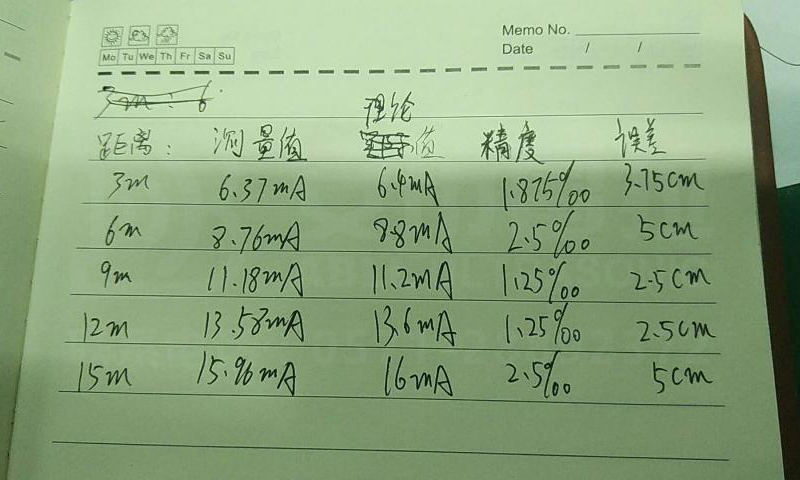 Memo No.
Mo Tu We Th Fr Sa Su
Date / /
3m : 6
理论
距离: 测量值 值 精度 误差
3m 6.37mA 6.4mA 1.875‰ 3.75cm
6m 8.76mA 8.8mA 2.5‰ 5cm
9m 11.18mA 11.2mA 1.25‰ 2.5cm
12m 13.58mA 13.6mA 1.25‰ 2.5cm
15m 15.96mA 16mA 2.5‰ 5cm